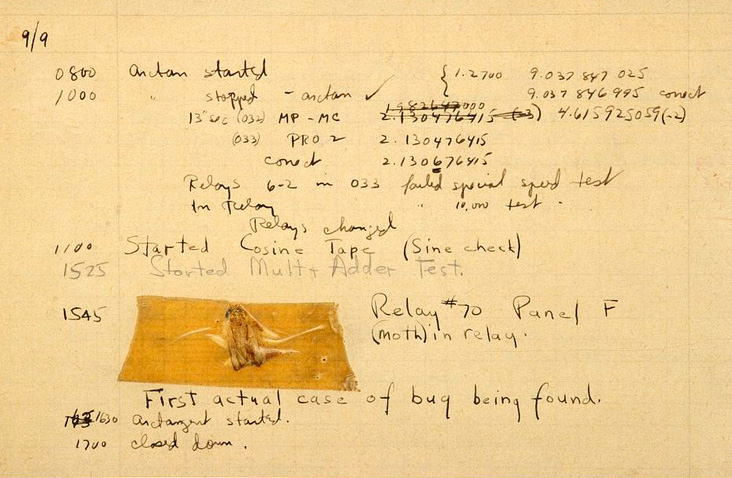 9/9
0800 arctan started { 1.2700 9.037 847 025
1000 " stopped - arctan ✓ 9.037 846 995 conect
13" sec (032) MP - MC 2.130476415 (-3) 4.615925059(-2)
(033) PRO 2 2.130476415
conect 2.130676415
Relays 6-2 in 033 failed special speed test
In Relay " 10.000 test .
Relays changed
1100 Started Cosine Tape (Sine check)
1525 Started Mult + Adder Test.
1545 Relay #70 Panel F
(moth) in relay.
First actual case of bug being found.
1630 arctangent started.
1700 closed down.